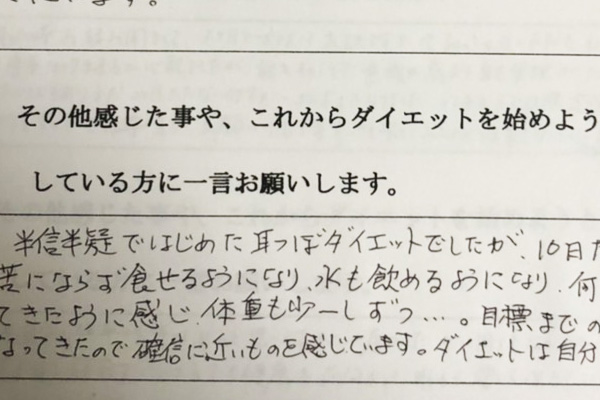 その他感じた事や、これからダイエットを始めよう
している方に一言お願いします。
半信半疑ではじめた耳つぼダイエットでしたが、10日
苦にならず食せるようになり、水も飲めるようになり、何
てきたように感じ、体重も少ーしずつ…。目標までの
なってきたので確信に近いものを感じています。ダイエットは自分